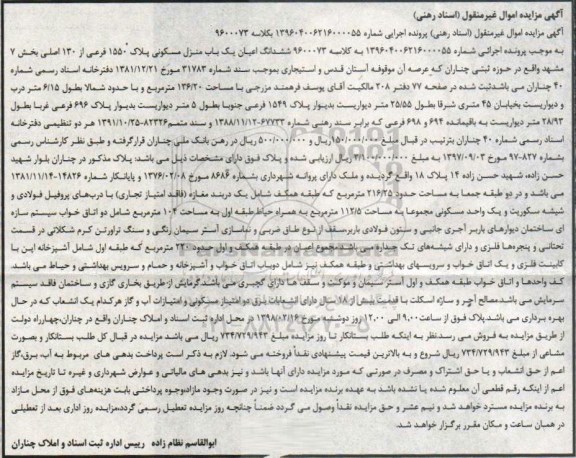 آگهی مزایده اموال غیرمنقول (اسناد رهنی)
آگهی مزایده اموال غیرمنقول (اسناد رهنی) پرونده اجرایی شماره ۱۳۹۶۰۴۰۰۶۲۱۶۰۰۰۰۵۵ بکلاسه ۹۶۰۰۰۷۳
به موجب پرونده اجرائی شماره ۱۳۹۶۰۴۰۰۶۲۱۶۰۰۰۰۵۵ به کلاسه ۹۶۰۰۰۷۳ ششدانگ اعیان یک باب منزل مسکونی پلاک ۱۵۵۰ فرعی از ۱۳۰ اصلی بخش ۷
مشهد واقع در حوزه ثبتی چناران که عرصه آن موقوفه آستان قدس و استیجاری بموجب سند شماره ۳۱۷۸۳ مورخ ۱۳۸۱/۱۲/۲۱ دفترخانه اسناد رسمی شماره
۴۰ چناران می باشد ثبت شده در صفحه ۷۷ دفتر ۲۰۸ مالکیت آقای یوسف فرهمند مزرجی با مساحت ۱۳۶/۲۰ مترمربع و با حدود شمالا بطول ۶/۱۵ متر درب
و دیواریست بخیابان ۴۵ متری شرقا بطول ۲۵/۵۵ متر دیواریست بدیوار پلاک ۱۵۴۹ فرعی جنوبا بطول ۵ متر دیواریست بدیوار پلاک ۶۹۶ فرعی غربا بطول
۲۸/۹۳ متر دیواریست به باقیمانده ۶۹۴ و ۶۹۸ فرعی که برابر سند رهنی شماره ۶۷۷۳۳-۱۳۸۸/۱۱/۱۲ و سند متمم ۸۲۳۲۶-۱۳۹۱/۱۰/۲۵ هر دو تنظیمی دفترخانه
اسناد رسمی شماره ۴۰ چناران بترتیب در قبال مبلغ ریال و ۵۰۰/۰۰۰/۰۰۰ ریال در رهن بانک ملی چناران قرار گرفته و طبق نظر کارشناس رسمی
بشماره ۸۲۷-۹۷ مورخ ۱۳۹۷/۰۹/۰۳ به مبلغ ریال ارزیابی شده و پلاک فوق دارای مشخصات ذیل می باشد: پلاک مذکور در چناران بلوار شهید
حسن زاده، شهید حسن زاده ۱۴ پلاک ۱۸ واقع گردیده و ملک دارای پروانه شهرداری بشماره ۸۶۸۶ مورخ ۱۳۷۶/۰۲/۰۸ و پایانکار شماره ۱۴۸۲۶-۱۳۸۱/۱۱/۱۴
می باشد و در دو طبقه جمعا به مساحت حدود ۲۱۶/۲۵ مترمربع که طبقه همکف شامل یک دربند مغازه (فاقد امتیاز تجاری) با درب های پروفیل فولادی و
شیشه سکوریت و یک واحد مسکونی مجموعا به مساحت ۱۱۲/۵ مترمربع به همراه حیاط طبقه اول به مساحت ۱۰۴ مترمربع شامل دو اتاق خواب سیستم سازه
ای ساختمان دیوارهای باربر آجری جانبی و ستون فولادی باربر، سقف از نوع طاق ضربی و نماسازی آستر سیمان رنگی و سنگ تراورتن کرم شکلاتی در قسمت
تحتانی و پنجره ها فلزی و دارای شیشه های تک جداره می باشد مجموع اعیان در طبقه همکف و اول حدود ۲۲۰ مترمربع که طبقه اول شامل آشپزخانه اپن با
کابینت فلزی و یک اتاق خواب و سرویسهای بهداشتی و طبقه همکف نیز شامل دو باب اتاق خواب و آشپزخانه و حمام و سرویس بهداشتی و حیاط می باشد.
کف واحدها و اتاق خواب طبقه همکف و اول آستر سیمان و موکت و سقف ها دارای گچبری می باشد گرمایش از طریق بخاری گازی و ساختمان فاقد سیستم
سرمایش می باشد. مصالح آجر و سازه اسکلت با قدمت بیش از ۱۸ سال دارای انشعابات برق دو امتیاز مسکونی و امتیازات آب و گاز هرکدام یک انشعاب که در حال
بهره برداری می باشد. پلاک فوق از ساعت ۹،۰۰ الی ۱۲،۰۰ روز دوشنبه مورخ ۱۳۹۸/۰۲/۱۶ در محل اداره ثبت اسناد و املاک چناران واقع در چناران، چهارراه دولت
از طریق مزایده به فروش می رسد. نظر به اینکه طلب بستانکار تا روز مزایده مبلغ ۷۳۴/۷۲۹/۹۴۳ ریال می باشد مزایده در قبال کل طلب بستانکار و بصورت
مشاعی از مبلغ ۷۳۴/۷۲۹/۹۴۳ ریال شروع و به بالاترین قیمت پیشنهادی نقداً فروخته می شود. لازم به ذکر است پرداخت بدهی های مربوط به آب، برق، گاز
اعم از حق انشعاب و یا حق اشتراک و مصرف در صورتی که مورد مزایده دارای آنها باشد و نیز بدهی های مالیاتی و عوارض شهرداری و غیره تا تاریخ مزایده
اعم از اینکه رقم قطعی آن معلوم شده یا نشده باشد به عهده برنده مزایده است و نیز در صورت وجود مازاد، وجوه پرداختی بابت هزینه های فوق از محل مازاد
به برنده مزایده مسترد خواهد شد و نیم عشر و حق مزایده نقداً وصول می گردد ضمناً چنانچه روز مزایده تعطیل رسمی گردد، مزایده روز اداری بعد از تعطیلی
در همان ساعت و مکان مقرر برگزار خواهد شد.
ابوالقاسم نظام زاده رییس اداره ثبت اسناد و املاک چناران